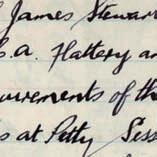 James Stewart
s.a. Flattery an
ourements of th
s at Petty Sess